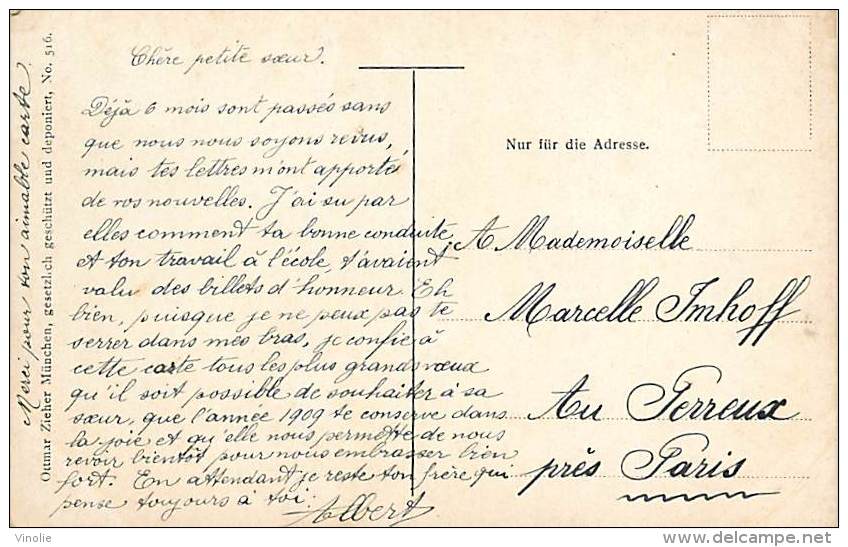 Merci pour ton aimable carte.
Ottmar Zieher München, gesetzlich geschützt und deponiert, No. 516.
Chère petite sœur.
Déjà 6 mois sont passés sans
que nous nous soyons revus,
mais tes lettres m'ont apporté
de vos nouvelles. J'ai su par
elles comment ta bonne conduite
et ton travail à l'école, t'avaient
valu des billets d'honneur. Eh
bien, puisque je ne peux pas te
serrer dans mes bras, je confie à
cette carte tous les plus grands vœux
qu'il soit possible de souhaiter à sa
sœur, que l'année 1909 te conserve dans
la joie et qu'elle nous permette de nous
revoir bientôt pour nous embrasser bien
fort. En attendant je reste ton frère qui
pense toujours à toi.
Albert
Nur für die Adresse.
A Mademoiselle
Marcelle Imhoff
Au Perreux
près Paris
© Vinolie
delcampe.net